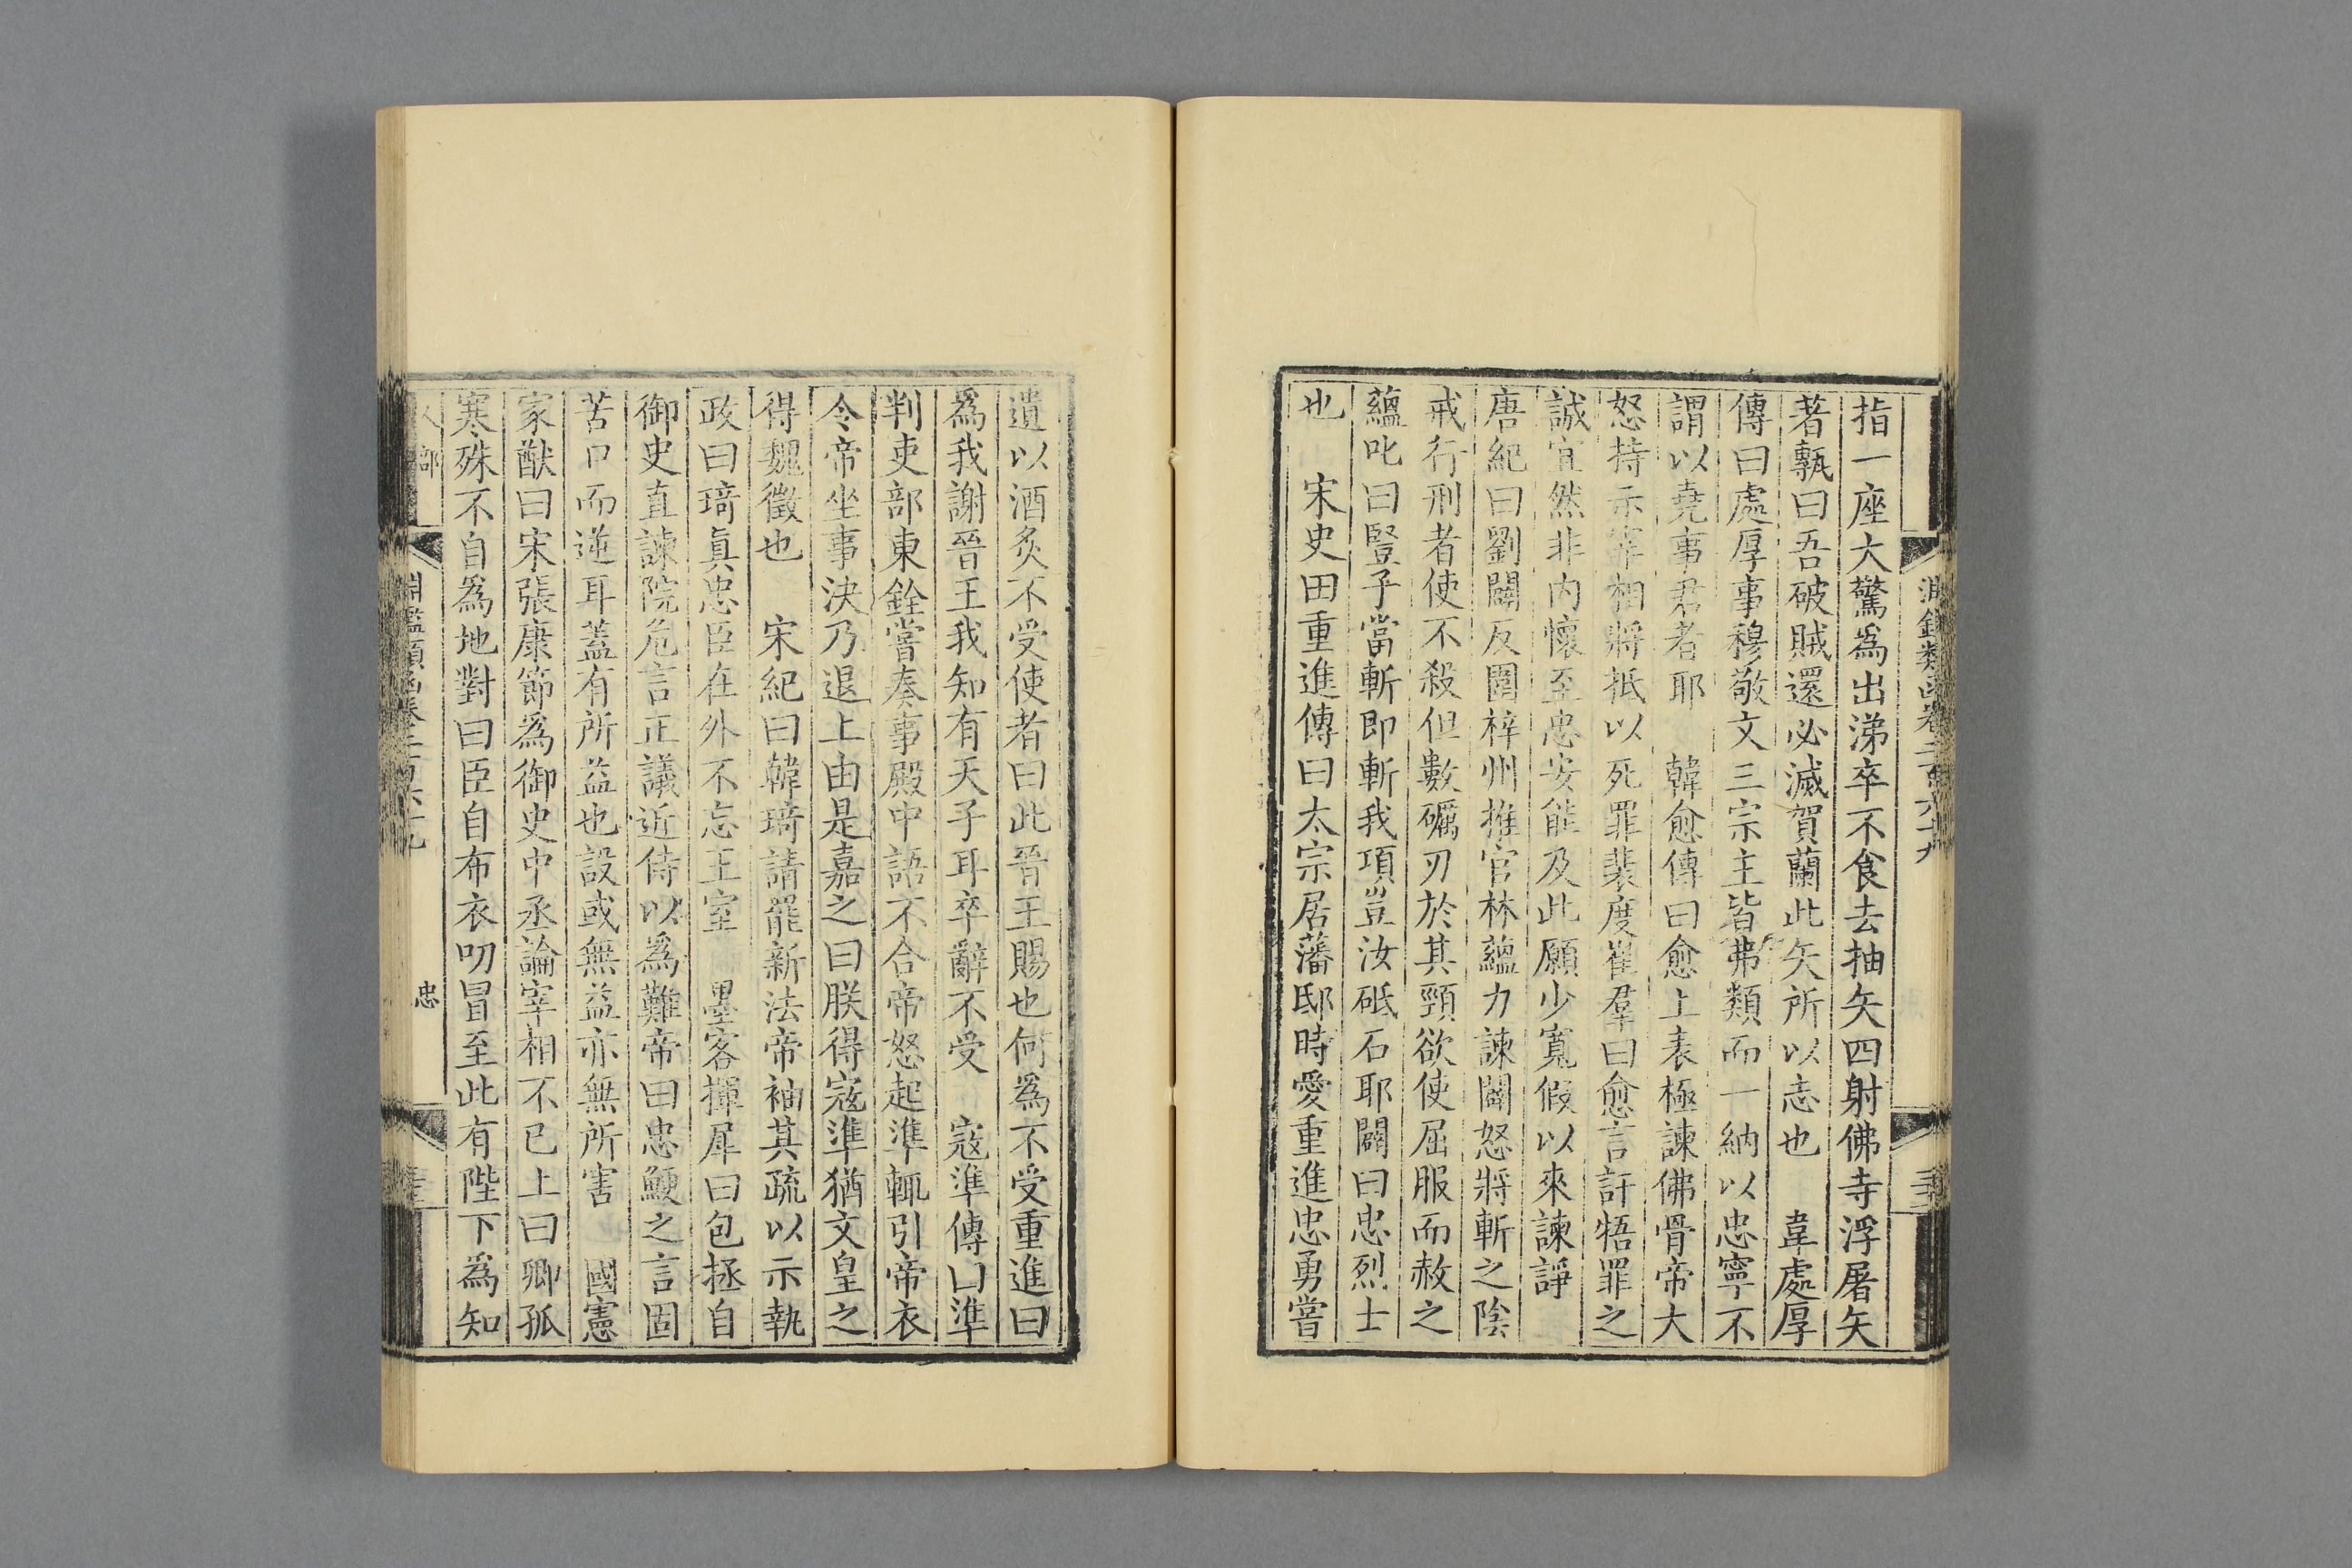 指一座大驚爲出涕卒不食去抽矢四射佛寺浮屠矢
著甎曰吾破賊還必滅賀蘭此矢所以志也　韋處厚
傳曰處厚事穆敬文三宗主皆弗類而一納以忠寧不
謂以堯事君者耶　韓愈傳曰愈上表極諫佛骨帝大
怒持示宰相將抵以死罪裴度崔羣曰愈言訐牾罪之
誠宜然非内懷至忠安能及此願少寬假以來諫諍
唐紀曰劉闢反圍梓州推官林蘊力諫闢怒將斬之陰
戒行刑者使不殺但數礪刃於其頸欲使屈服而赦之
蘊叱曰豎子當斬即斬我項豈汝砥石耶闢曰忠烈士
也　宋史田重進傳曰太宗居藩邸時愛重進忠勇嘗
遺以酒炙不受使者曰此晉王賜也何爲不受重進曰
爲我謝晉王我知有天子耳卒辭不受　寇準傳曰準
判吏部東銓嘗奏事殿中語不合帝怒起準輒引帝衣
令帝坐事決乃退上由是嘉之曰朕得寇準猶文皇之
得魏徵也　宋紀曰韓琦請罷新法帝袖其疏以示執
政曰琦眞忠臣在外不忘王室　墨客揮犀曰包拯自
御史直諫院危言正議近侍以爲難帝曰忠鯁之言固
苦口而逆耳蓋有所益也設或無益亦無所害　國憲
家猷曰宋張康節爲御史中丞論宰相不已上曰卿孤
寒殊不自爲地對曰臣自布衣叨冒至此有陛下爲知
人部
淵鑑類函卷二百六十九
忠